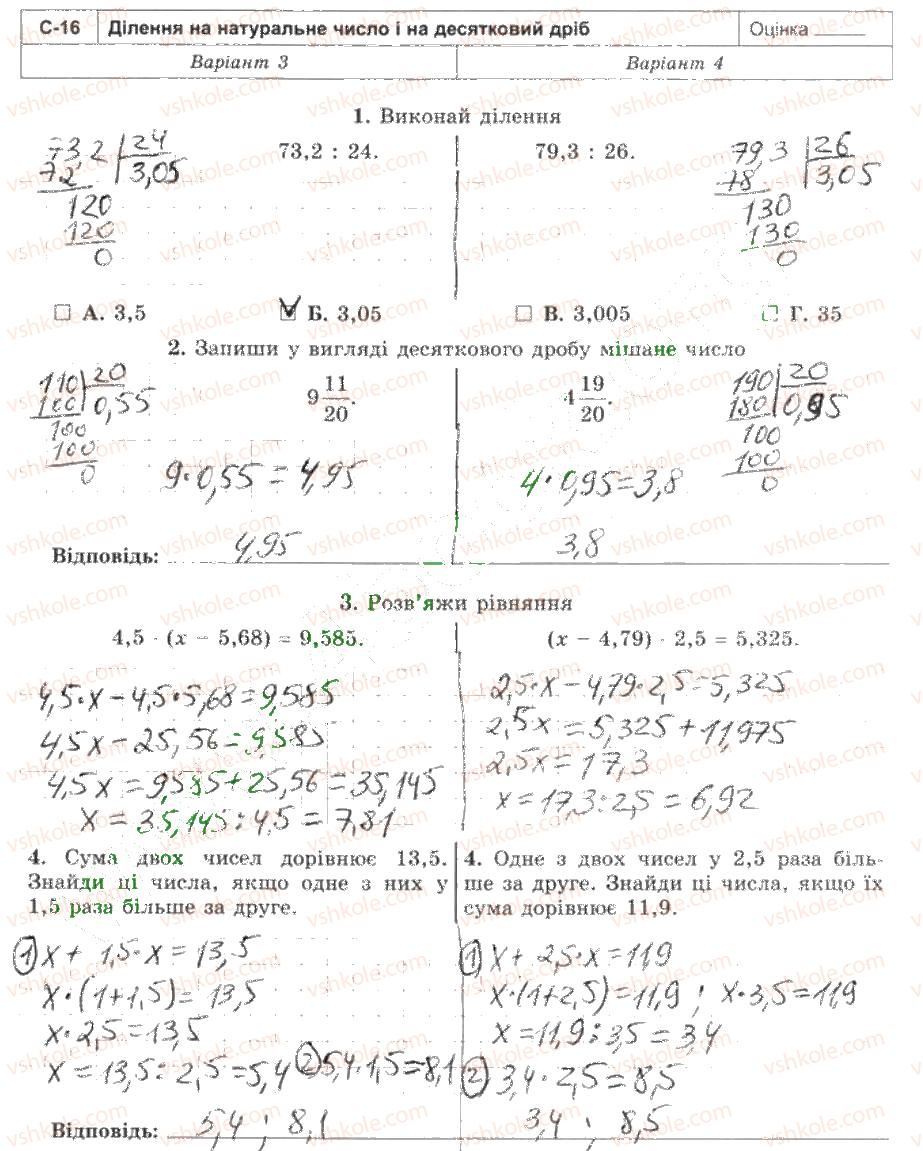 С-16 Ділення на натуральне число і на десятковий дріб Оцінка
Варіант 3 Варіант 4
1. Виконай ділення
73,2 : 24. 79,3 : 26.
73,2 24 79,3 26
72 3,05 78 3,05
120 130
120 130
0 0
А. 3,5 Б. 3,05 В. 3,005 Г. 35
2. Запиши у вигляді десяткового дробу мішане число
9 11/20. 4 19/20.
110 20 190 20
100 0,55 180 0,95
100 100
100 100
0 0
9·0,55=4,95 4·0,95=3,8
Відповідь: 4,95 3,8
3. Розв'яжи рівняння
4,5 · (x − 5,68) = 9,585. (x − 4,79) · 2,5 = 5,325.
4,5·x−4,5·5,68=9,585 2,5·x−4,79·2,5=5,325
4,5x−25,56=9,585 2,5x=5,325+11,975
4,5x=9,585+25,56=35,145 2,5x=17,3
x=35,145:4,5=7,81 x=17,3:2,5=6,92
4. Сума двох чисел дорівнює 13,5.
Знайди ці числа, якщо одне з них у
1,5 раза більше за друге.
1) x+1,5·x=13,5
x·(1+1,5)=13,5
x·2,5=13,5
x=13,5:2,5=5,4 2) 5,4·1,5=8,1
4. Одне з двох чисел у 2,5 раза біль-
ше за друге. Знайди ці числа, якщо їх
сума дорівнює 11,9.
1) x+2,5·x=11,9
x·(1+2,5)=11,9; x·3,5=11,9
x=11,9:3,5=3,4
2) 3,4·2,5=8,5
Відповідь: 5,4; 8,1 3,4; 8,5
vshkole.com